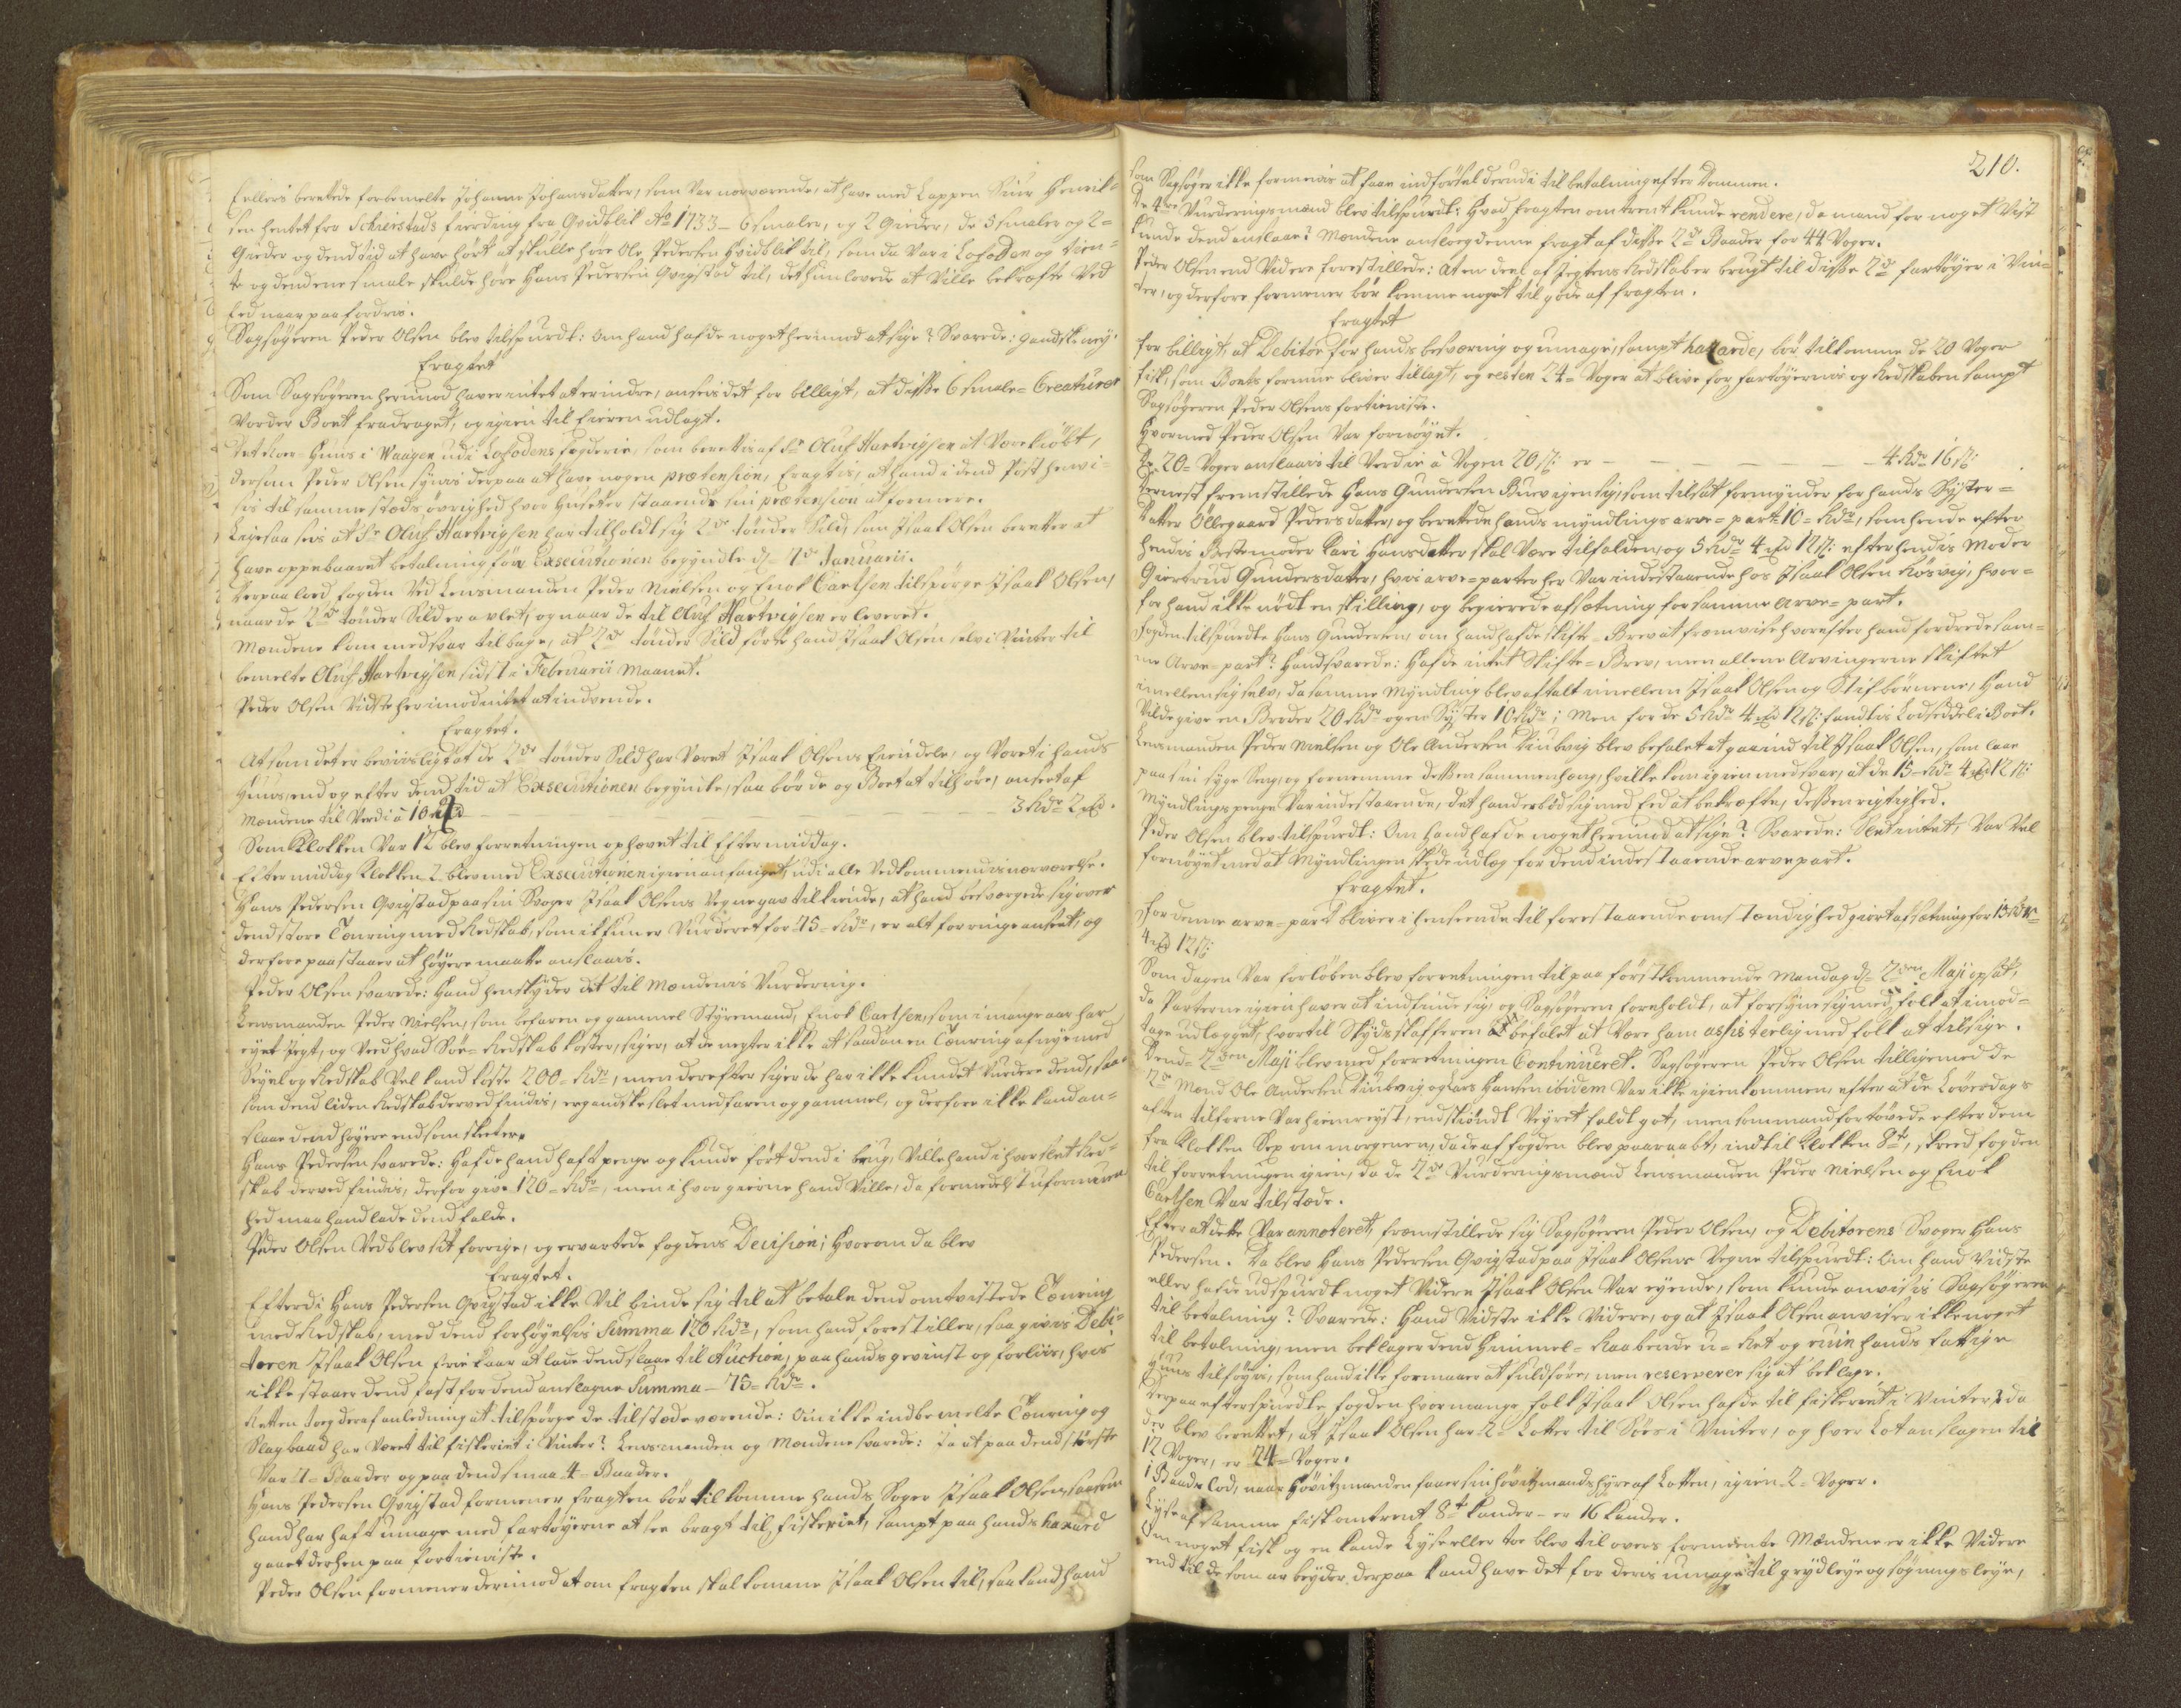 Ellers berettede forbemelte Johanna Johansdatter, som var nærværende, at have med Lappen Siur Henrik-
sen hentet fra Schierstads fierding fra Qvidblik Ao 1733 - 6 smaler, og 2 Gieder, de 5 smaler og 2=
Gieder og dend tid at have hørt at skulle høre Ole Pedersen Hvidblik til, som da var i Lofodden og tien-
te og dend ene smale skulde høre Hans Pedersen Qvigstad til, det hun lovede at ville bekræfte ved
Eed naar paafordris.
Sagsøgeren Peder Olsen blev tilspurdt: om hand hafde noget herimod at sige? Svarede: gandske ney.
Eragtet
Som Sagsøgeren herimod haver intet at erindre, ansees det for billigt, at disse 6 smale= Creaturer
vorder Boet fradraget, og igien til Eieren udlagt.
Det Roer= Huus i Waagen udi Lofodens fogderie, som berettis af Sr Oluf Hartvigsen at være kiøbt,
dersom Peder Olsen synis derpaa at have nogen prætension, Eragtis, at hand i dend Post henvi-
sis til samme stæds øvrighed hvor Huset er staaende sin prætension at formere.
Ligesaa seis at Sr Oluf Hartvigsen har tilholdt sig 2de tønder Sild, som Isaak Olsen beretter at
have oppebaaret betaling før Exsecutionen begyndte d= 7de Januarii.
Derpaa loed fogden ved Lensmanden Peder Nielsen og Enok Carlsen tilspørge Isaak Olsen,
naar de 2de tønder Sild er avlet, og naar de til Oluf Hartvigsen er leveret.
Mændene kom med svar tilbage, at 2de tønder Sild førte hand Isaak Olsen selv i Vinter til
bemelte Oluf Hartvigsen sidst i Februarii Maanet.
Peder Olsen vidste herimod intet at indvende.
Eragtet.
At som det er beviisligt at de 2de tønder Sild har været Isaak Olsens Eiendele, og været i hands
Huus, end og efter dend tid at Exsecutionen begyndte, saa bør de og Boet at tilhøre, anseet af
Mændene til Verdi à 10 - 3 Rdr 2
Som Klokken var 12 blev forretningen ophævet til Eftermiddag.
Eftermiddag Klokken 2 blev med Exsecutionen igien anfanget, udi alle vedkommendis nærværelse.
Hans Pedersen Qvigstad paa sin Svoger Isaak Olsens vegne gav tilkiende, at hand besværgede sig over
dend store Tønring med Redskab, som ikkun er Vurderet for 75= Rdr, er alt for ringe ansat, og
derfore paastaaer at høyere maatte anslaais.
Peder Olsen svarede: Hand henskyder det til Mændenis Vurdering.
Lensmanden Peder Nielsen, som befaren og gammel Styrmand, Enok Carlsen, som i mange aar har
eyet Jægt, og veed hvad Søe= Redskab koster, siger, at de negter ikke at saadan en Tønring af nye med
Seyel og Redskab vel kand koste 200= Rdr, men derefter siger de har ikke kundet vurdere dend, saa=
som dend liden Redskab derved findis, er gandske slet medfaren og gammel, og derfore ikke kand an=
slaae dend høyere end som skeet er.
Hans Pedersen svarede: Hafde hand haft penge og kunde ført dend i brug, ville hand i hvor slet Red-
skab derved findis, derfor give 120= Rdr, men i hvor gierne hand ville, da formedelst uformuen-
hed maa hand lade dend falde.
Peder Olsen vedblev sit forrige, og ervartede fogdens Decision; hvorom da blev
Eragtet.
Efterdi Hans Pedersen Qvigstad ikke vil binde sig til at betale dend omtvistede Tønring
med Redskab, med dend forhøyelsis Summa 120 Rdr, som hand forestiller, saa givis Debi-
toren Isaak Olsen frie kaar at lade dend slaae til Auction, paa hands gevinst og forliis, hvis
ikke staaer dend fast for dend anslagne Summa - 75= Rdr.
Retten toeg deraf anledning at tilspørge de tilstædeværende: Om ikke indbemelte Tønring og
Slagbaad har været til fiskeriet i Vinter? Lensmanden og Mændene svarede: Ja at paa dend største
var 7= Baader og paa dend smaa 4= Baader.
Hans Pedersen Qvigstad formener fragten bør tilkomme hands Svoger Isaak Olsen, saasom
hand har haft umage med fartøyerne at see bragt til fiskeriet, sampt paa hands hazard
gaaet derhen paa fortieniste.
Peder Olsen formener derimod at om fragten skal komme Isaak Olsen til, saa kand hand

210.
som Sagsøger ikke formeenis at faae indførsel derudi til betaling efter Dommen.
De 4re Vurderings mænd blev tilspurdt: hvad fragten omtrent kunde rendere, da mand for noget vist
kunde dend anslaae? Mændene ansloeg denne fragt af disse 2de Baader for 44 Voger.
Peder Olsen end videre forestillede: at en deel af Jegtens Redskaber brugt til disse 2de fartøyer i Vin-
ter, og derfore formener bør komme noget til gode af fragten.
Eragtet
for billigt, at Debitor for hands besværing og umage, sampt hazarde, bør tilkomme de 20 Voger
fisk, som Boets formue bliver tillagt, og resten 24= Voger at blive for fartøyernis og Redskaben sampt
Sagsøgeren Peder Olsens fortieniste.
Hvormed Peder Olsen var fornøyet.
De 20= Voger anslaais til Verdie à Vogen 20 s: er - 4 Rdr 16 s:
Dernest fremstillede Hans Gundersen Buevigen sig, som tilsat formynder for hands Syster=
Datter Ollegaard Pedersdatter, og berettede hands myndlings arve= part 10= Rdr, som hende efter
hendis Bestemoder Kari Hansdatter skal være tilfalden, og 5 Rdr 4 12 s: efter hendis Moder
Giertrud Gundersdatter, hvis arve=parter her var indestaaende hos Isaak Olsen Røsvig, hvor-
for hand ikke nødt en skilling, og begierede afsætning for samme arve= part.
Fogden tilspurdte Hans Gundersen, om hand hafde skifte= Brev at fremvise hvorefter hand fordrede sam-
me Arve= part? Hand svarede: hafde intet Skifte= Brev, men allene Arvingerne skiftet
imellem sig selv, da samme Myndling blev aftalt imellem Isaak Olsen og Stifbørnene, hand
vilde give en Broder 20 Rdr og en Syster 10 Rdr; Men for de 5 Rdr 4 12 s: fandtis Lodseddel i Boet.
Lensmanden Peder Nielsen og Ole Andersen blev befalet at gaae ind til Isaak Olsen, som laae
paa sin syge Seng, og fornemme dessen sammenhæng, hvilke kom igien med svar, at de 15= Rdr 4 12 s:
Myndlings penge var indestaaende, det hand erbød sig med Eed at bekræfte, dessen rigtighed.
Peder Olsen blev tilspurdt: Om hand hafde noget herimod at sige? Svarede: Slet intet, var vel
fornøyet med at Myndlingen skeede udlæg for dend indestaaende arvepart.
Eragtet.
for denne arve= part bliver i henseende til forestaaende omstændighed giort afsætning for 15 Rdr
4 12 s:
Som dagen var forløben blev forretningen til paa førstkommende Mandag d= 2den Maji opsat,
da Parterne igien haver at indfinde sig, og Sagsøgeren foreholdt, at forsyne sig med folk at imod-
tage udlægget, hvortil Skydsskafferen befalet at være ham assisteerlig med folk at tilsige.
Dend= 2den Maji blev med forretningen Continueret. Sagsøgeren Peder Olsen tilligemed de
2de Mænd Ole Andersen og Lars Hansen ibidem var ikke igienkommen, efter at de Løverdags
aften tilforne var hiemreyst, endskiøndt veyret faldt got, men som mand fortøvede efter dem
fra Klokken Sex om morgenen, da de af fogden blev paaraabt, indtil Klokken 8te, skreed fogden
til forretningen igien, da de 2de Vurderings mænd Lensmanden Peder Nielsen og Enok
Carlsen var tilstæde.
Efter at dette var annoteret, fremstillede sig Sagsøgeren Peder Olsen, og Debitorens Svoger Hans
Pedersen. Da blev Hans Pedersen Qvigstad paa Isaak Olsens Vegne tilspurdt: Om hand vidste
eller hafde udspurdt noget videre Isaak Olsen var eyende, som kunde anvisis Sagsøgeren
til betaling? Svarede: Hand vidste ikke videre, og at Isaak Olsen anviser ikke noget
til betaling, men beklager dend Himmel= Raabende u= Ret og ruin hands fattige
Huus tilføyis, som hand ikke formaaer at fuldføre, men reserverer sig at beklage.
Derpaa efterspurdte fogden hvor mange folk Isaak Olsen hafde til fiskeriet i Vinter? da
der blev berettet, at Isaak Olsen har 2= Lotter til Søes i Vinter, og hver Lot anslagen til
12 Voger, er 24= Voger.
1 Baads Lod, naar Høvitzmanden faaer sin høvitzmands hyre af Lotten, igien 2= Voger.
Lyse af samme fisk omtrent 8te kander - er 16 kander.
Om noget fisk og en kande Lyse eller toe blev til overs formeente Mændene er ikke videre
end til de som arbeyder derpaa kand have det for deris umage til grydleye og søgnings leye,